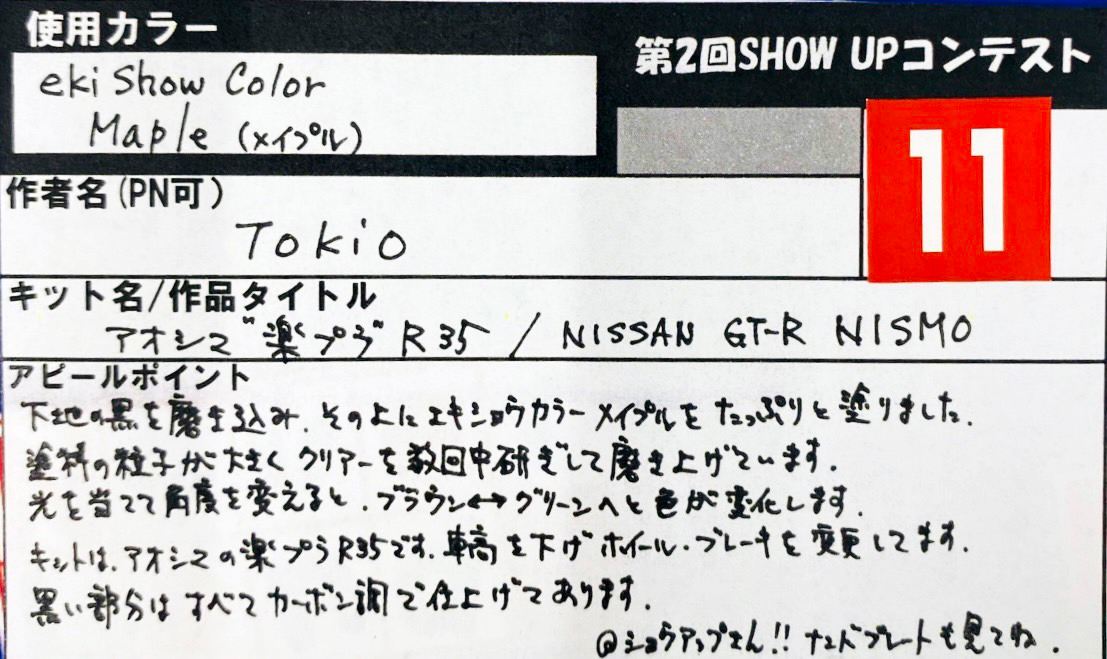 使用カラー
第2回SHOW UPコンテスト
eki Show Color
Maple (メイプル)
11
作者名(PN可)
Tokio
キット名/作品タイトル
アオシマ 楽プラ R35 / NISSAN GT-R NISMO
アピールポイント
下地の黒を磨き込み、その上にエキショウカラー メイプルをたっぷりと塗りました.
塗料の粒子が大きく クリアーを数回中研ぎして磨き上げています.
光を当てて角度を変えると、ブラウン↔グリーンへと色が変化します.
キットは、アオシマの楽プラR35です. 車高を下げ ホイール・ブレーキを変更してます.
黒い部分はすべてカーボン調で仕上げてあります.
@ショウアップさん!! ナンバープレートも見てね.